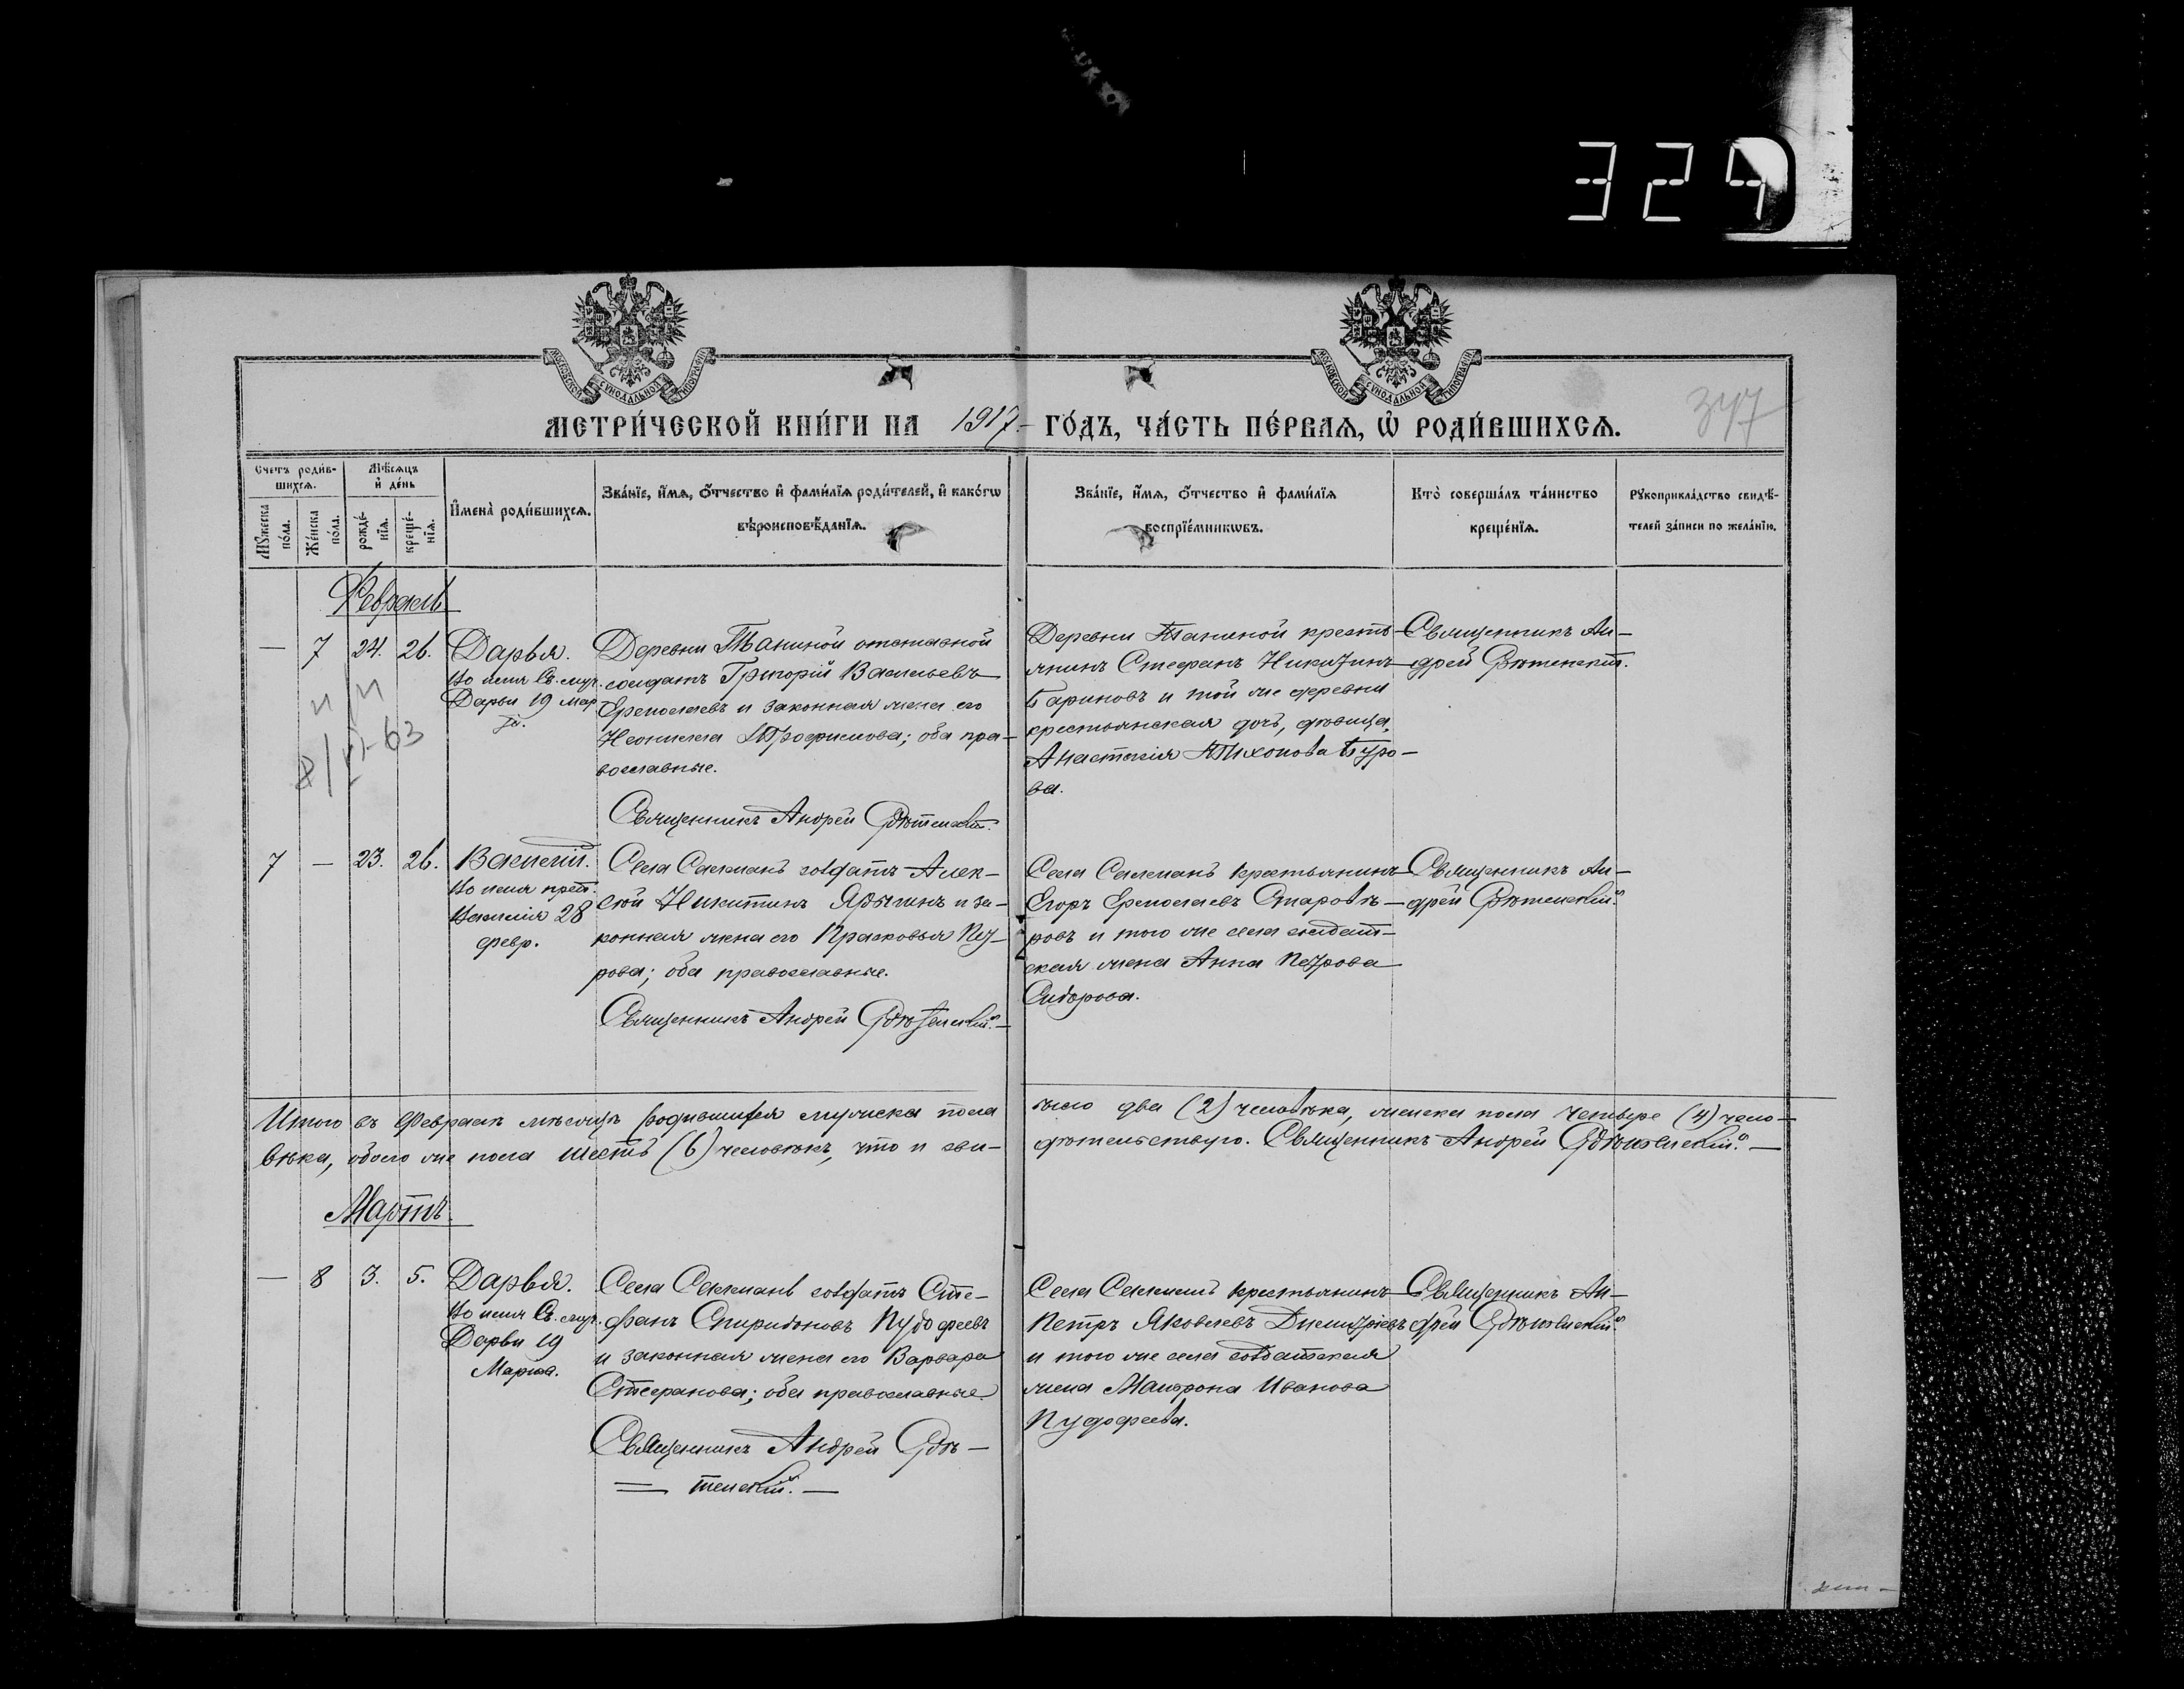 329
МОСКОВСКОЙ СУНОДАЛЬНОЙ ТИПОГРАФІИ
МОСКОВСКОЙ СУНОДАЛЬНОЙ ТИПОГРАФІИ
МЕТРИ́ЧЕСКОЙ КНИ́ГИ НА 1917 ГО́ДЪ, ЧА́СТЬ ПЕ́РВАЯ, Ѡ РОДИ́ВШИХСЯ.
347
Счетъ роди́в-
шихся.
Мѣ́сяцъ
и҆ де́нь
Мꙋ́жеска по́ла.
Же́нска по́ла.
рожде́-
нїя.
креще́-
нїя.
И҆мена̀ роди́вшихся.
Зва́нїе, и҆́мя, ѻ҆́тчество и҆ фами́лїя роди́телей, и҆ како́гѡ
вѣ́роисповѣ́данїя.
Зва́нїе, и҆́мя, ѻ҆́тчество и҆ фами́лїя
воспрїе́мникѡвъ.
Кто̀ соверша́лъ та́инство
креще́нїя.
Рꙋкоприкла́дство свидѣ́-
телей за́писи по жела́нїю.
Февраль
— 7 24. 26. Дарья.
Во имя Св. муч.
Дарьи 19 мар
та.
Деревни Таниной отставной
солдатъ Григорій Васильевъ
Ермолаевъ и законная жена его
Неонилла Трофимова; оба пра-
вославные.
Священникъ Андрей
Деревни Таниной кресть-
янинъ Стефанъ Никитинъ
Бариновъ и той же деревни
крестьянская дочь, дѣвица,
Анастасія Тихонова Буро-
ва.
Священникъ Ан-
дрей
8/VI-63
7 — 23. 26. Василій.
Во имя преп.
Василія 28
февр.
Села солдатъ Алек-
сѣй Никитинъ Ярыгинъ и за-
конная жена его Прасковья
рова; оба православные.
Священникъ Андрей
Села крестьянинъ
Егоръ Ермолаевъ
ровъ и того же села солдат-
ская жена Анна Петрова
Сидорова.
Священникъ Ан-
дрей
Итого въ Февралѣ мѣсяцѣ родившихся мужеска пола
было два (2) человѣка, женска пола четыре (4) чело-
вѣка, обоего же пола шесть (6) человѣкъ, что и сви-
дѣтельствую. Священникъ Андрей
Мартъ.
— 8 3. 5. Дарья.
Во имя Св. муч.
Дарьи 19
Марта.
Села солдатъ Сте-
фанъ Спиридоновъ Пудофеевъ
и законная жена его Варвара
Стефанова; оба православные.
Священникъ Андрей
Села крестьянинъ
Петръ Яковлевъ Димитріевъ
и того же села солдатская
жена Матрона Иванова
Пудофеева.
Священникъ Ан-
дрей